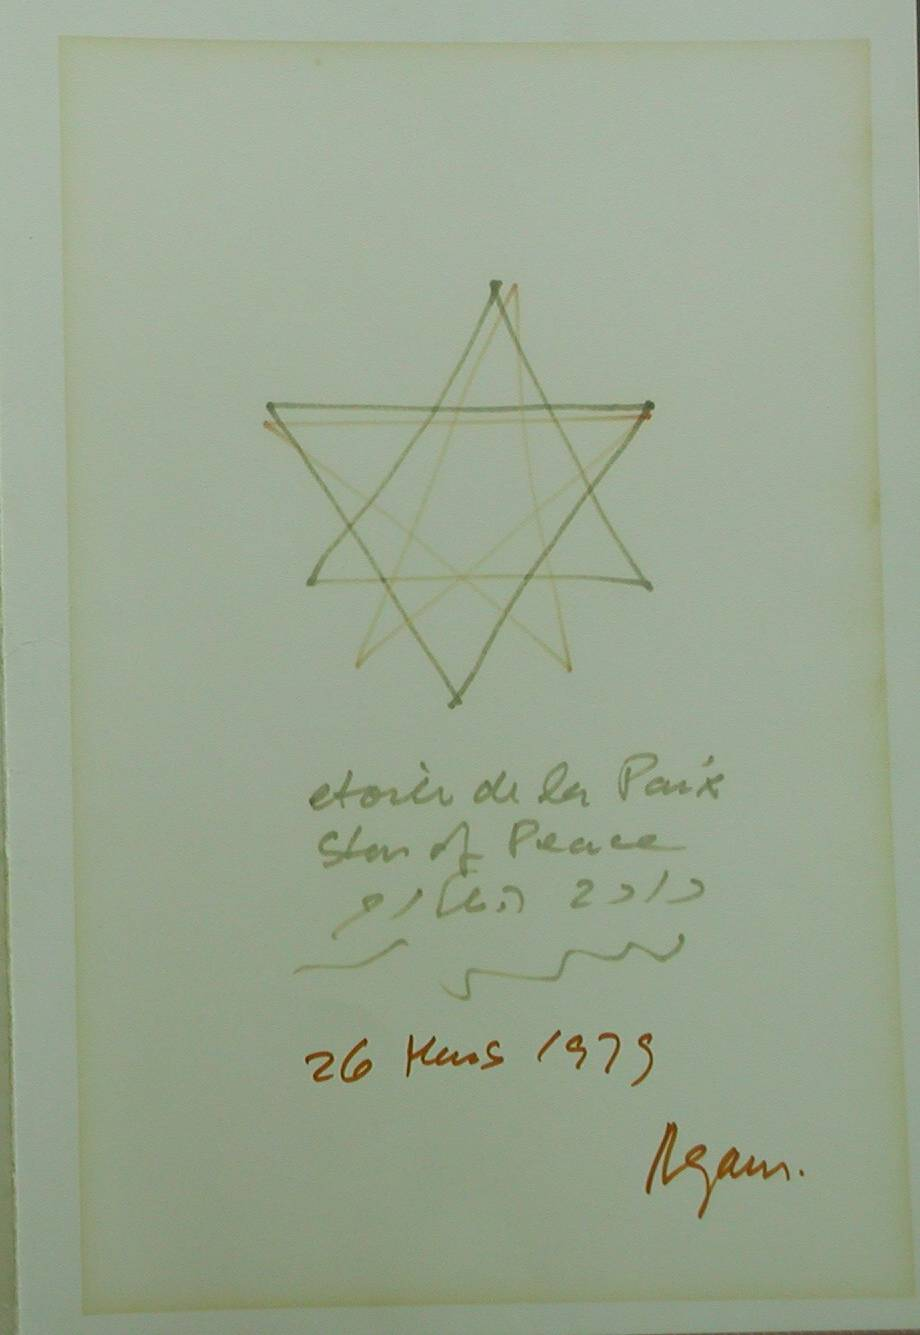 etoile de la Paix
Star of Peace
כוכב השלום
26 Mars 1979
Agam.